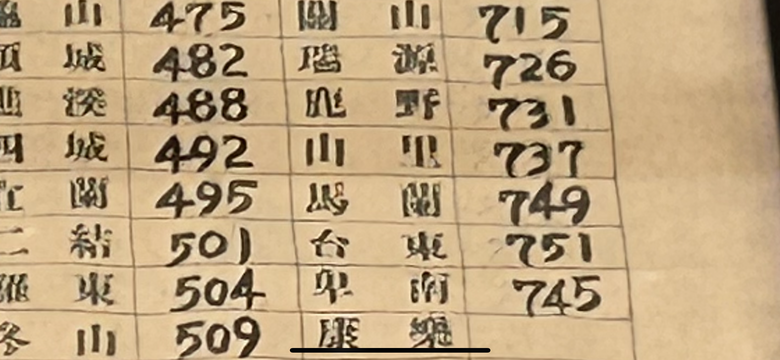 山 475 關山 715
城 482 瑞源 726
溪 488 鹿野 731
四城 492 山里 737
蘭 495 馬蘭 749
二結 501 台東 751
羅東 504 卑南 745
冬山 509 康樂